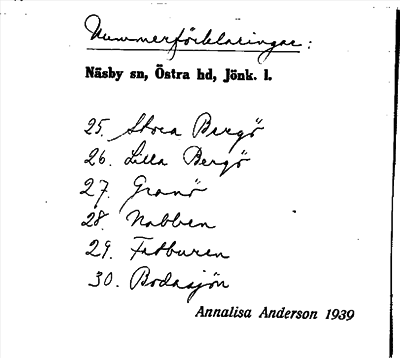 Nummerförklaringar:
Näsby sn, Östra hd, Jönk. l.
25. Stora Bergö
26. Lilla Bergö
27. Granö
28. Nabben
29. Fatburen
30. Bodasjön
Annalisa Anderson 1939